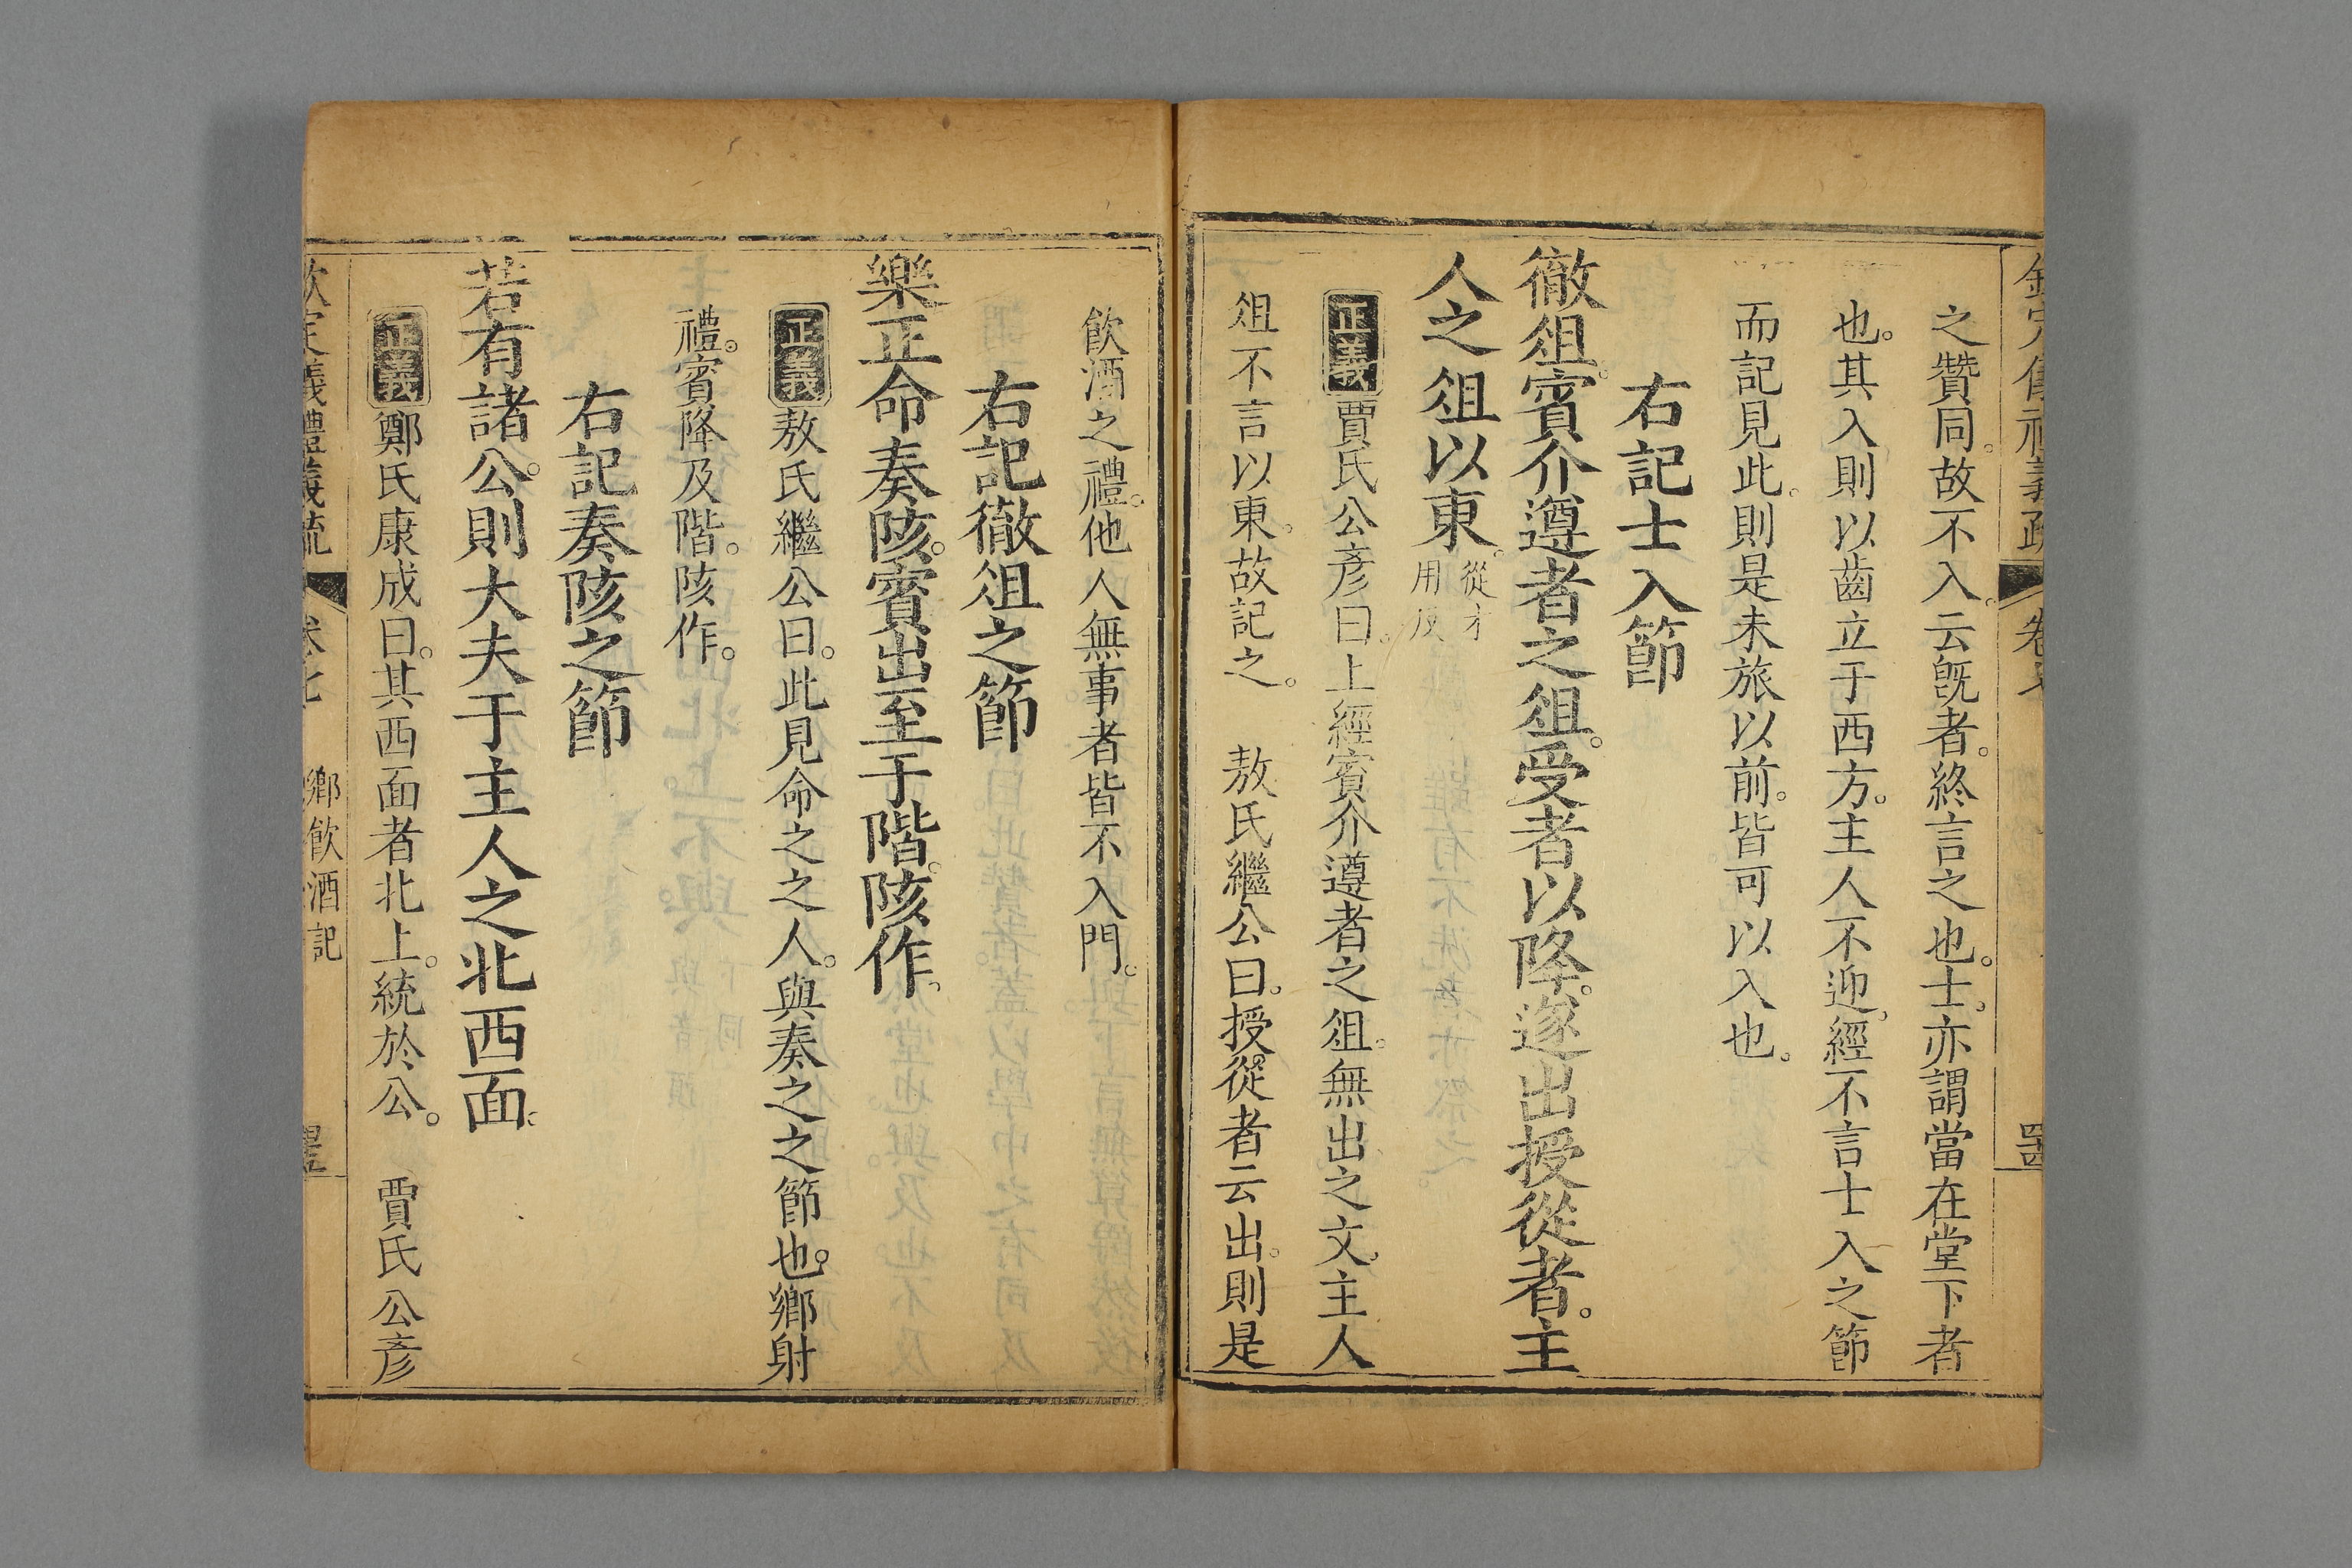 之贊同。故不入。云旣者。終言之也。士。亦謂當在堂下者
也。其入則以齒立于西方。主人不迎。經不言士入之節
而記見此。則是未旅以前。皆可以入也。
右記士入節
徹俎。賓介遵者之俎。受者以降。遂出授從者。主
人之俎以東。從才用反
正義賈氏公彥曰。上經賓介遵者之俎。無出之文。主人
俎不言以東。故記之。 敖氏繼公曰。授從者云出。則是
飲酒之禮。他人無事者皆不入門。
右記徹俎之節
樂正命奏陔。賓出至于階。陔作。
正義敖氏繼公曰。此見命之之人。與奏之之節也。鄉射
禮。賓降及階。陔作。
右記奏陔之節
若有諸公。則大夫于主人之北西面。
正義鄭氏康成曰。其西面者北上。統於公。 賈氏公彥
欽定義禮義疏 卷七 鄉飲酒記